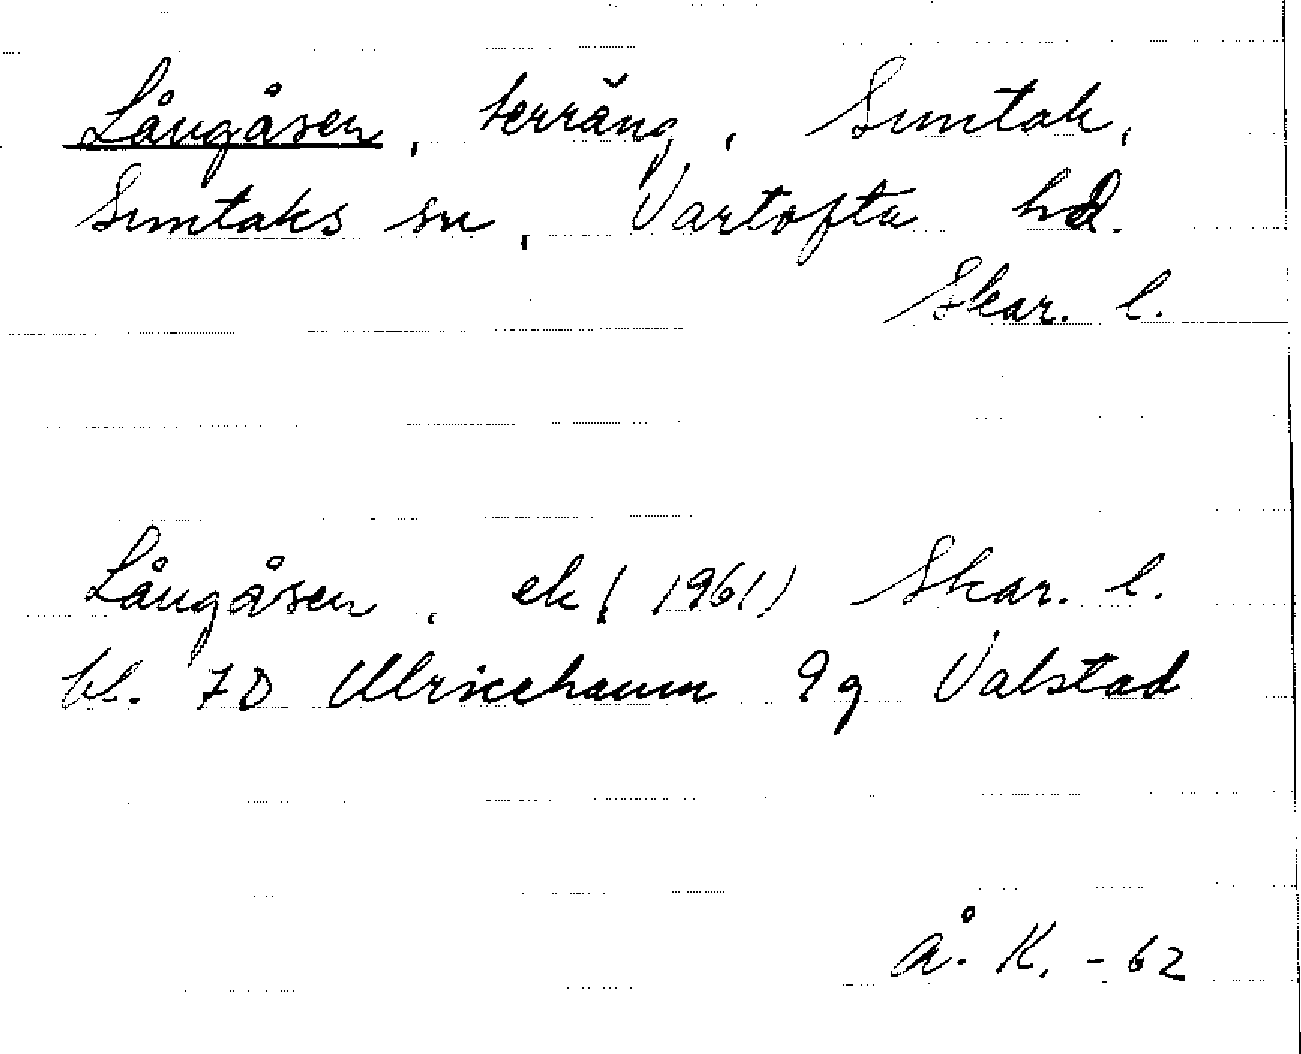 Långåsen, terräng, Suntak,
Suntaks sn, Vartofta hd.
Skar. l.
Långåsen, ek (1961) Skar. l.
bl. 7D Ulricehamn 9g Valstad
Å. K. -62